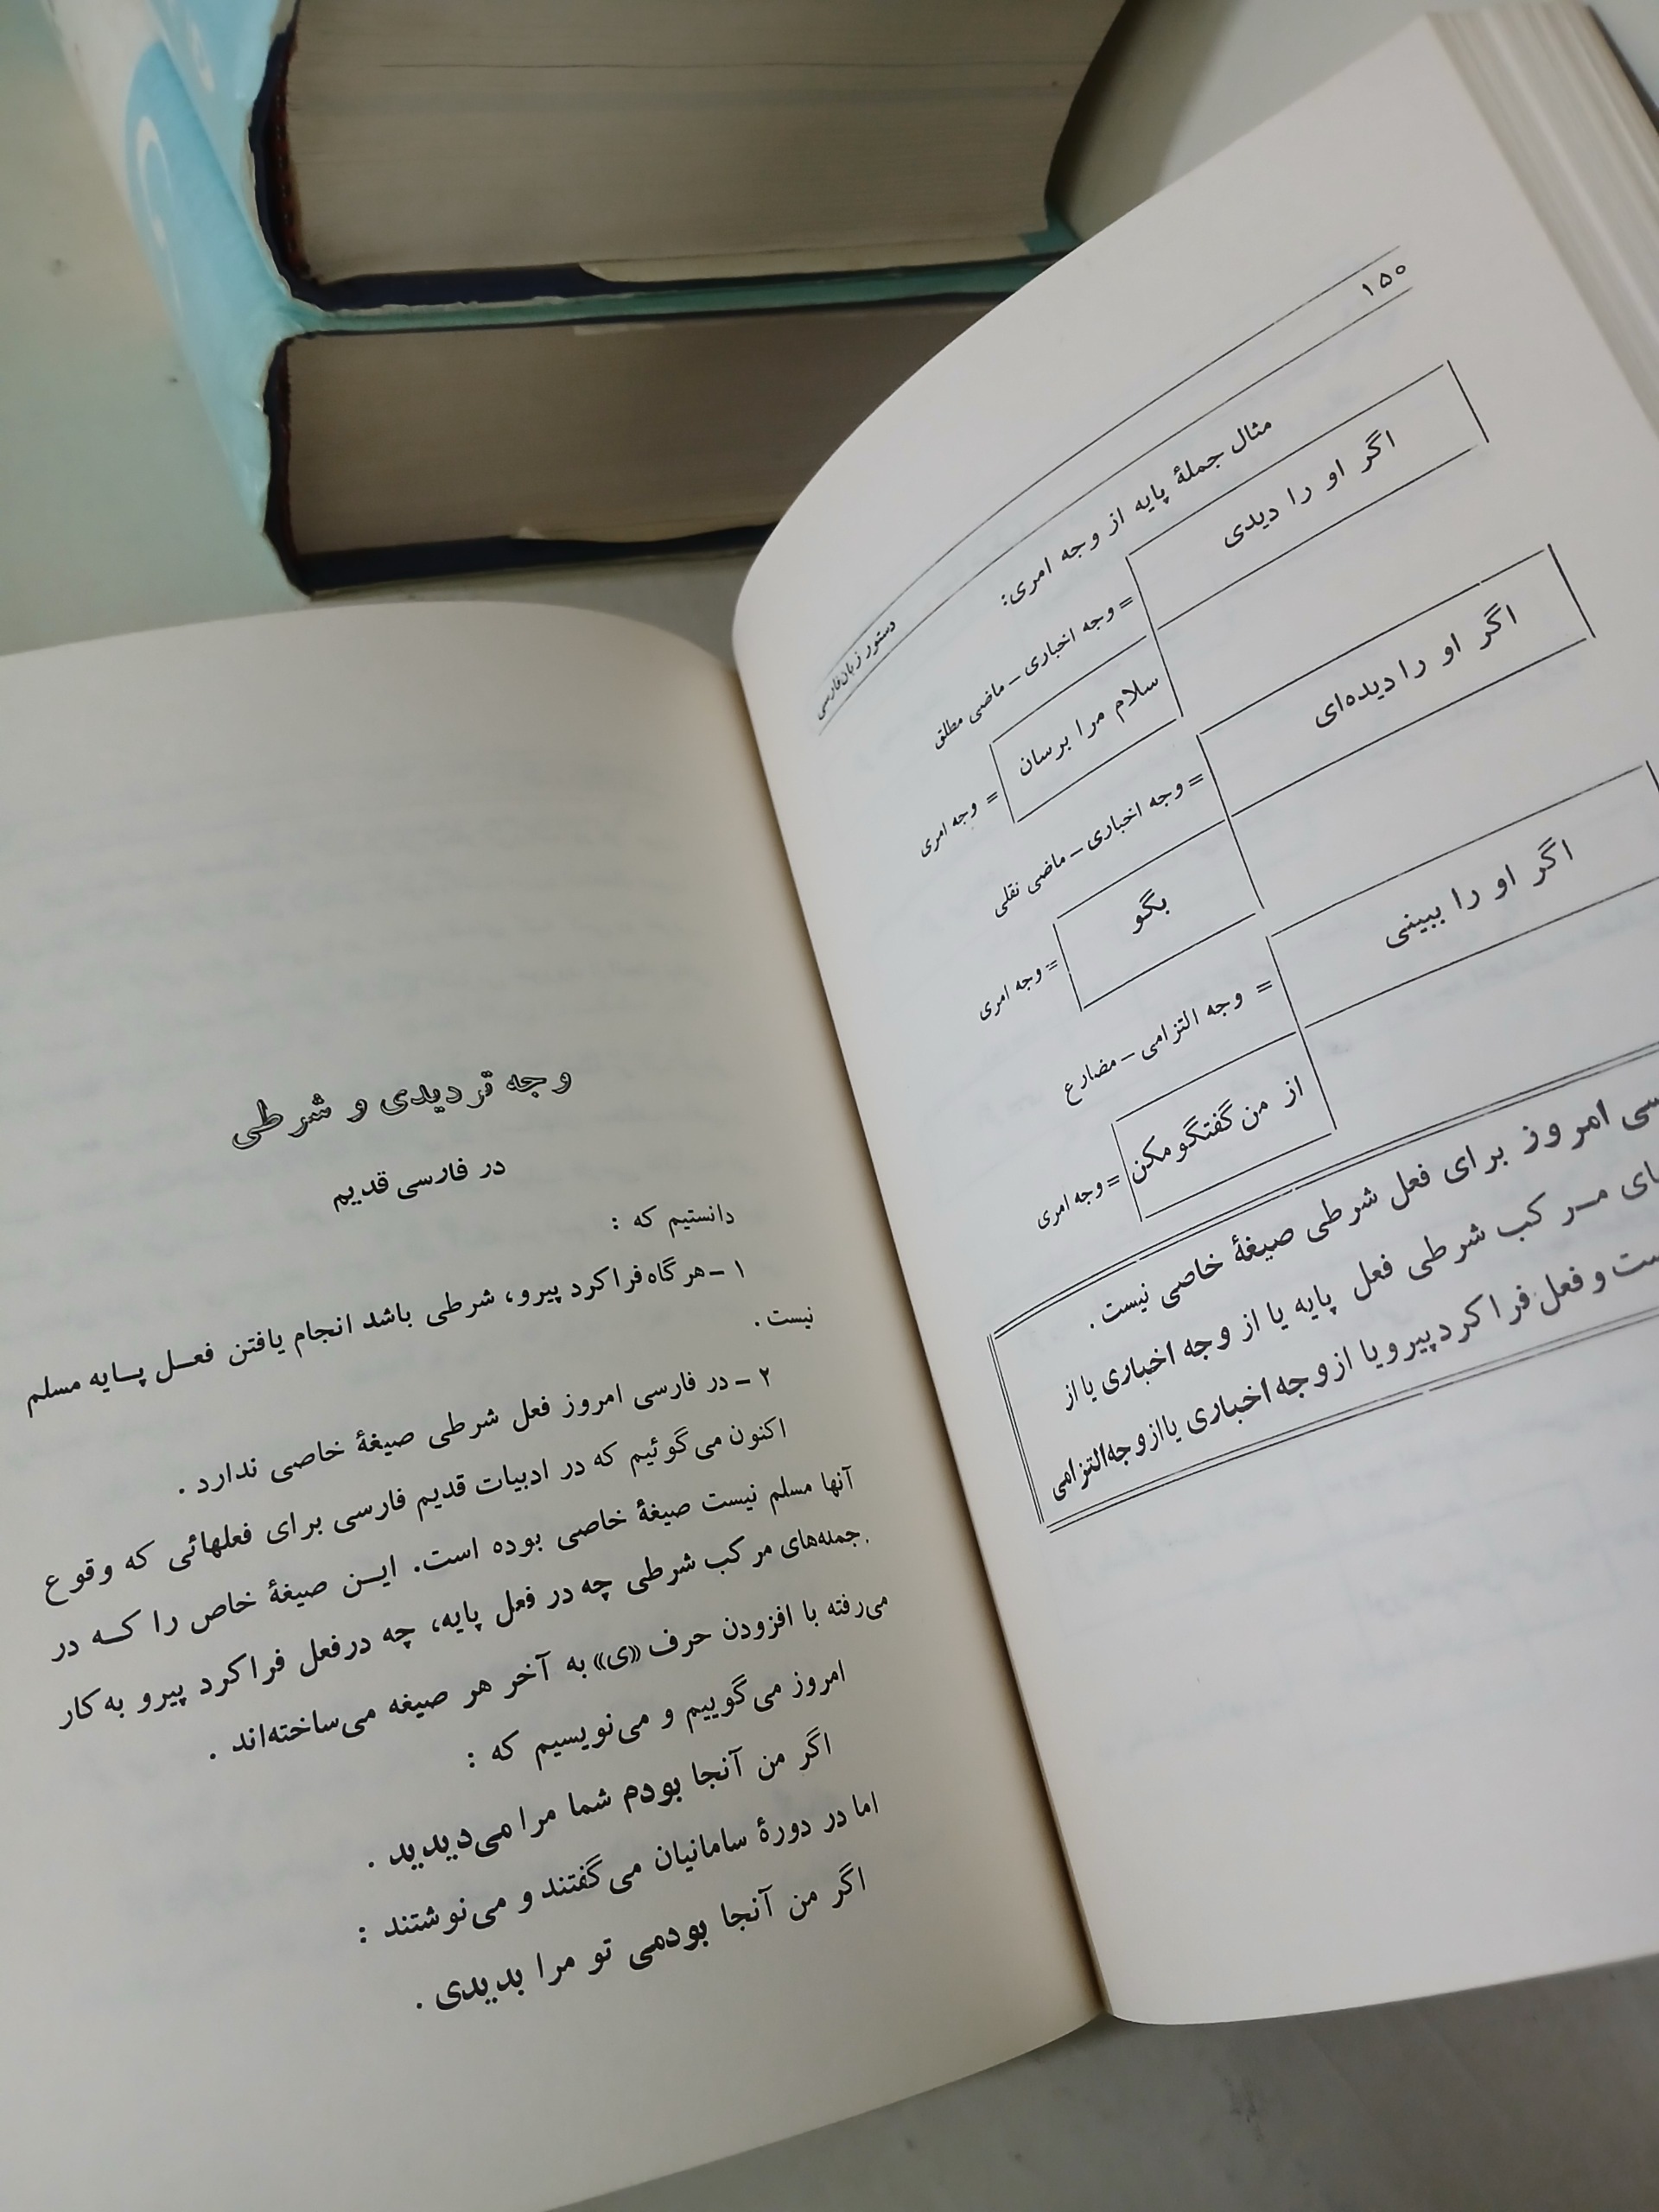 ۱۵۰
دستور زبان فارسی
مثال جملهٔ پایه از وجه امری:
اگر او را دیدی
= وجه اخباری – ماضی مطلق
سلام مرا برسان
= وجه امری
اگر او را دیده‌ای
= وجه اخباری – ماضی نقلی
بگو
= وجه امری
اگر او را ببینی
= وجه التزامی – مضارع
از من گفتگو مکن
= وجه امری
امروز برای فعل شرطی صیغهٔ خاصی نیست .
مرکب شرطی فعل پایه یا از وجه اخباری یا از
و فعل فراکرد پیرو یا از وجه اخباری یا از وجه التزامی
وجه تردیدی و شرطی
در فارسی قدیم
دانستیم که :
۱ – هر گاه فراکرد پیرو، شرطی باشد انجام یافتن فعل پایه مسلم
نیست .
۲ – در فارسی امروز فعل شرطی صیغهٔ خاصی ندارد .
اکنون می‌گوئیم که در ادبیات قدیم فارسی برای فعلهائی که وقوع
آنها مسلم نیست صیغهٔ خاصی بوده است. این صیغهٔ خاص را که در
جمله‌های مرکب شرطی چه در فعل پایه، چه درفعل فراکرد پیرو به کار
می‌رفته با افزودن حرف «ی» به آخر هر صیغه می‌ساخته‌اند .
امروز می‌گوییم و می‌نویسیم که :
اگر من آنجا بودم شما مرا می‌دیدید .
اما در دورهٔ سامانیان می‌گفتند و می‌نوشتند :
اگر من آنجا بودمی تو مرا بدیدی .